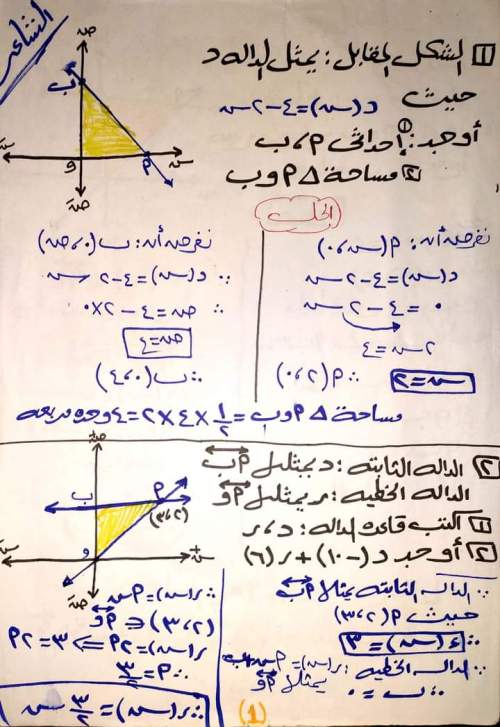 الشاعر
١ الشكل المقابل: يمثل الداله د
حيث
د(س)=٤-٢س
أوجد: ١ إحداثى م، ب
٢ مساحة △ م و ب
ص
ب
و
م
س
سَ
صَ
الحل
نفرض أن: م(س،٠)
د(س)=٤-٢س
٠=٤-٢س
٢س=٤
س=٢
∴ م(٢،٠)
نفرض أن: ب(٠،ص)
∵ د(س)=٤-٢س
∴ ص=٤-٢×٠
ص=٤
∴ ب(٠،٤)
مساحة △ م و ب = ١/٢ ×٤×٢=٤ وحده مربعه
٢ الداله الثابته: د يمثلها م ب
الداله الخطيه: ر يمثلها م و
١ اكتب قاعدة الداله: د، ر
٢ أوجد د(-١٠)+ر(٦)
ص
ب
م
(٣،٢)
و
س
سَ
صَ
∵ الداله الثابته يمثلها م ب
حيث م(٢،٣)
∴ د(س)=٣
∵ الداله الخطيه: ر(س)=م س+ب
يمثلها م و
∴ ب=٠
∴ ر(س)=م س
(٢،٣) ∈ م و
ر(س)=٢م ⇒ ٣=٢م
∴ م=٣/٢
∴ ر(س)=٣/٢ س
(1)